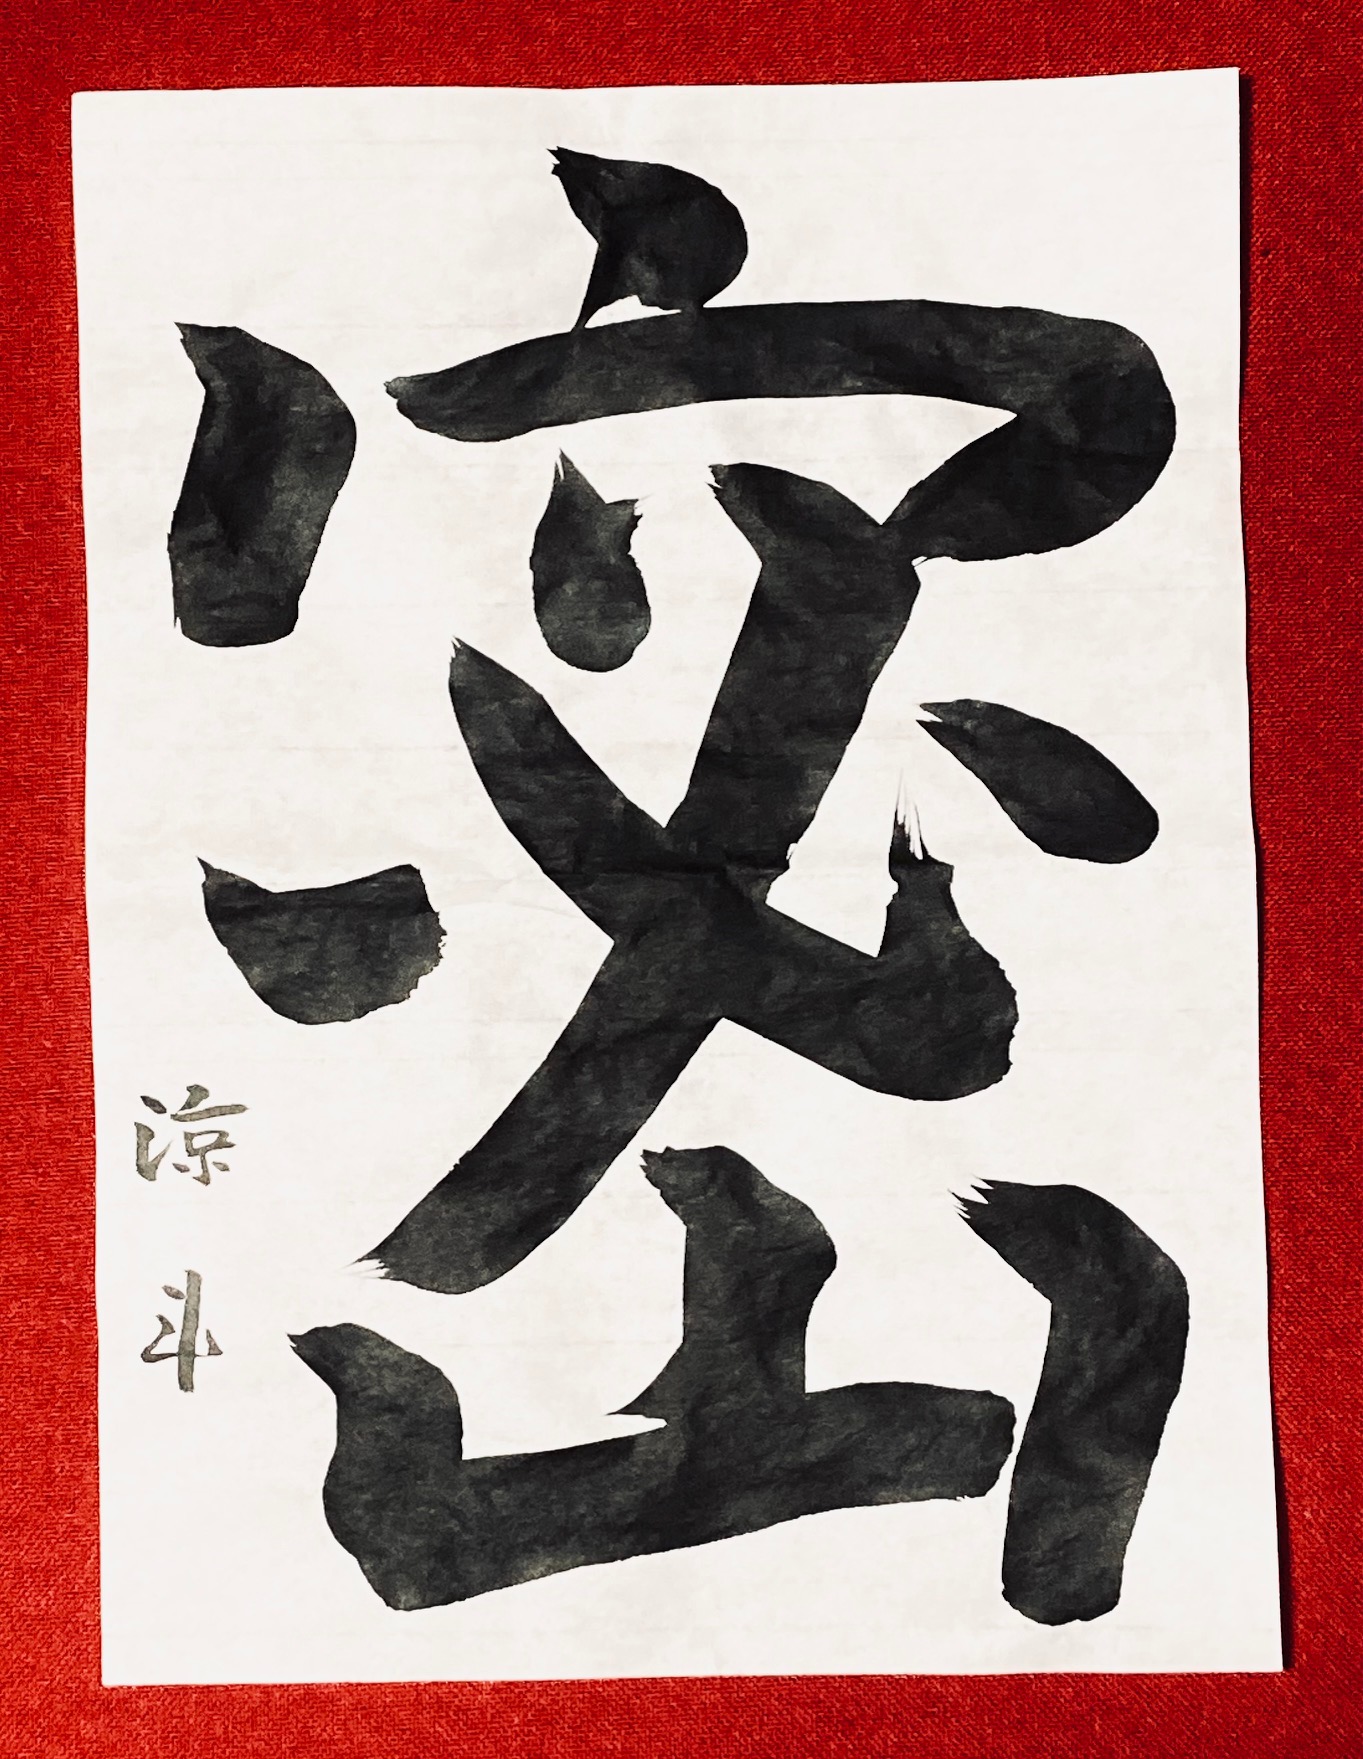 密
涼斗